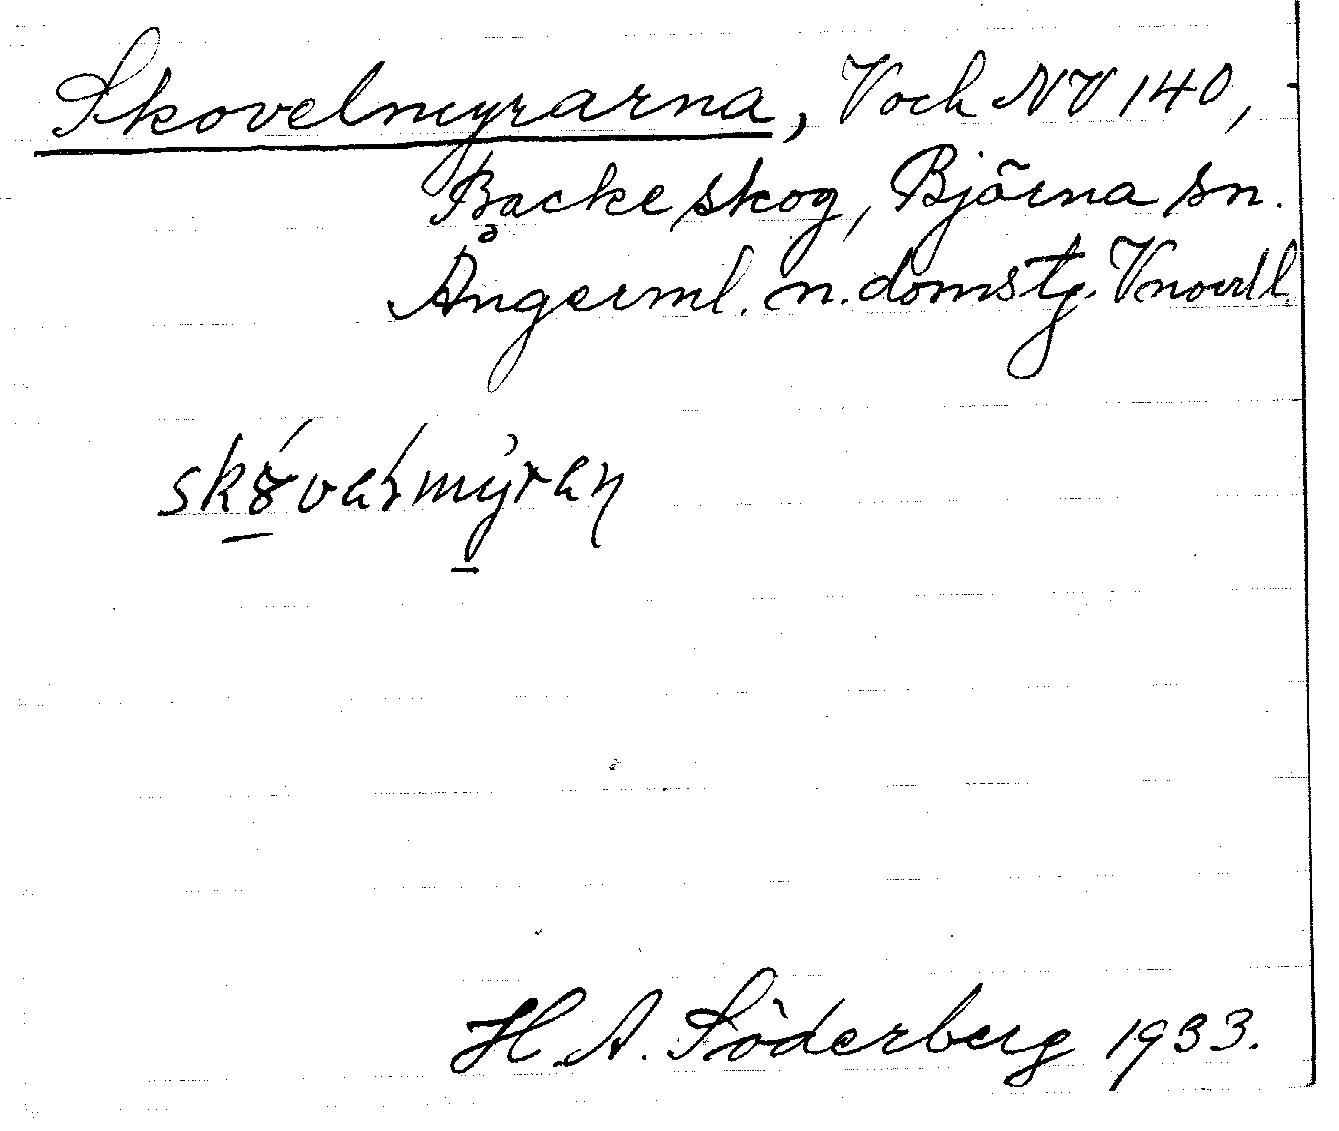 Skovelmyrarna, V och NV 140,
Backe skog, Björna sn.
Ångerml. n. domstg. Vnorrl.
H. A. Söderberg 1933.